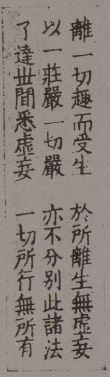 離一切趣而受生　於所離生無虛妄
以一莊嚴一切嚴　亦不分別此諸法
了達世間悉虛妄　一切所行無所有